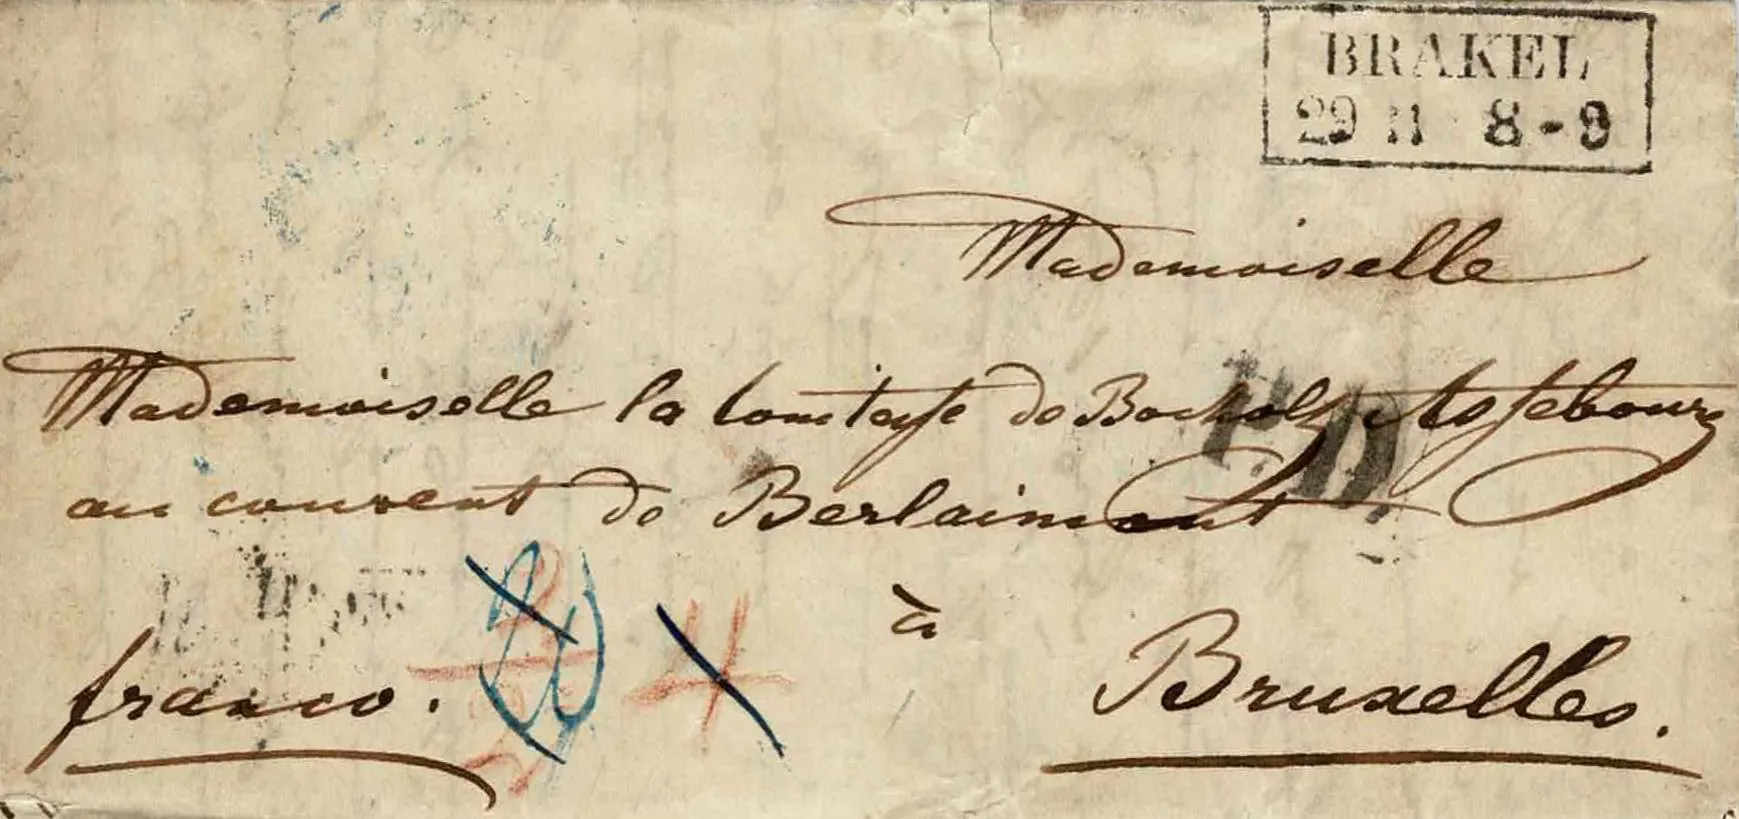 BRAKEL
29 11 8-9
Mademoiselle
Mademoiselle la Comtesse de Bocholz Assebourg
P.D.
au couvent de Berlaimont
à
franco.
4
Bruxelles.